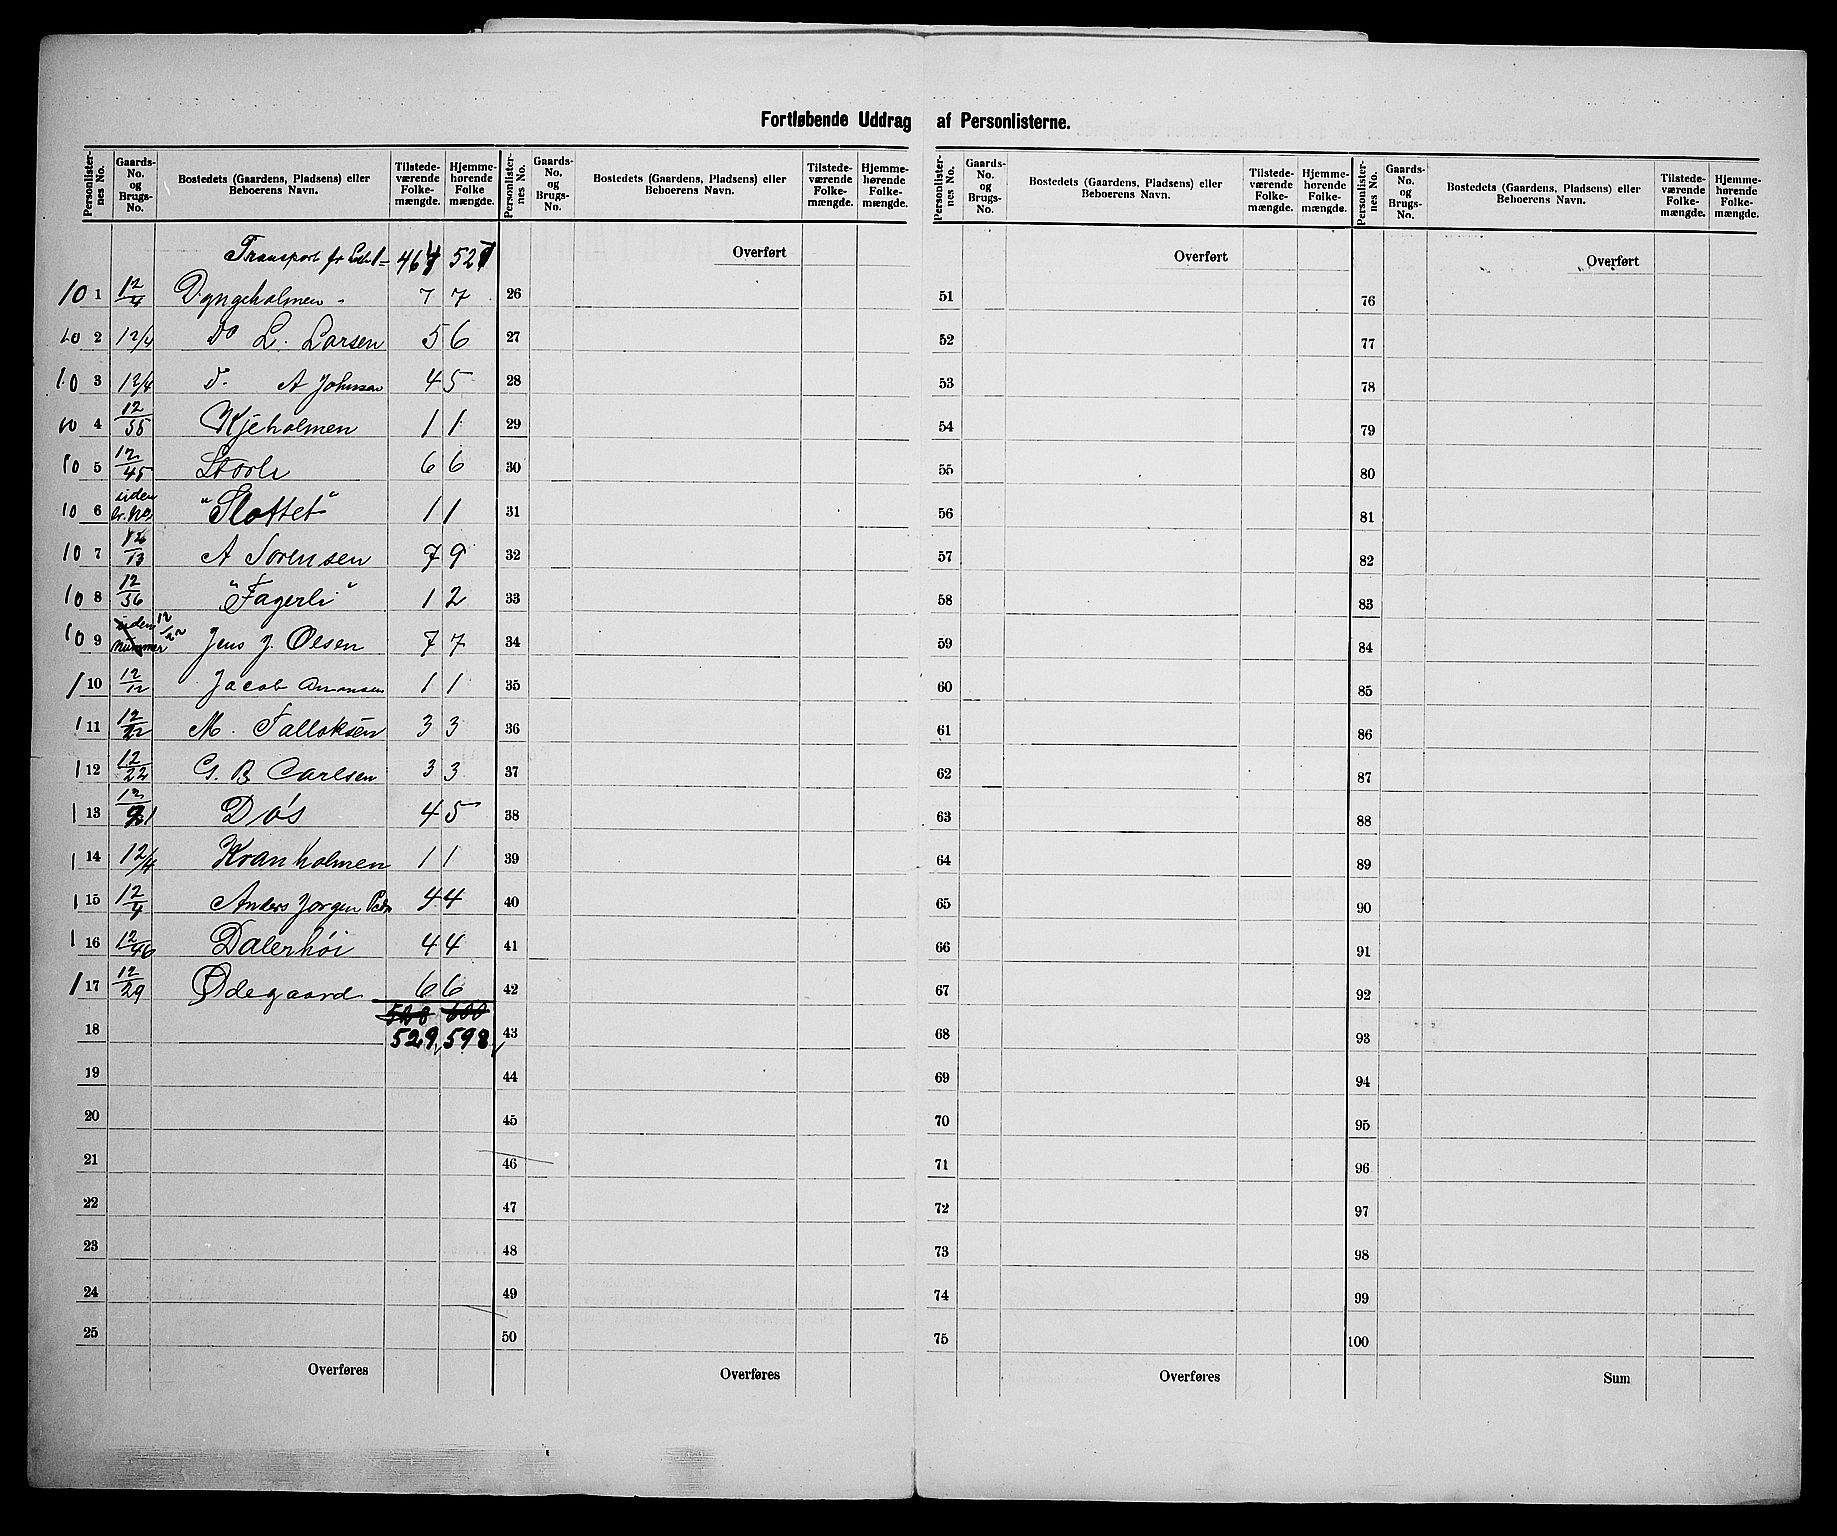 Fortløbende Uddrag af Personlisterne.
Personlister-nes No. Gaards-No. og Brugs-No. Bostedets (Gaardens, Pladsens) eller Beboerens Navn. Tilstede-værende Folke-mængde. Hjemme-hørende Folke mængde.
Transport fr Liste 1 - 467 527
10 1 12/4 Dyngeholmen - 7 7
10 2 12/4 Do L. Larsen 5 6
10 3 12/4 D. A Johnsen 4 5
10 4 12/55 Kjeholmen 1 1
10 5 12/45 Storli 6 6
10 6 uden br. No "Slottet" 1 1
10 7 12/13 A Sorensen 7 9
10 8 12/56 "Fagerli" 1 2
10 9 uden nummer 12/22 Jens J. Olsen 7 7
1 10 12/12 Jacob 1 1
1 11 12/22 M. Falloksen 3 3
1 12 12/22 G. B Carlsen 3 3
1 13 12/21 Do's 4 5
1 14 12/4 Kranholmen 1 1
1 15 12/4 Anders Jorgen 4 4
1 16 12/46 Dalerhöi 4 4
1 17 12/29 Ødegaard 6 6
600
18 529 598
19
20
21
22
23
24
25
Overføres
Personlister-nes No. Gaards-No. og Brugs-No. Bostedets (Gaardens, Pladsens) eller Beboerens Navn. Tilstede-værende Folke-mængde. Hjemme-hørende Folke-mængde.
Overført
26
27
28
29
30
31
32
33
34
35
36
37
38
39
40
41
42
43
44
45
46
47
48
49
50
Overføres
Personlister-nes No. Gaards-No. og Brugs-No. Bostedets (Gaardens, Pladsens) eller Beboerens Navn. Tilstede-værende Folke-mængde. Hjemme-hørende Folke-mængde.
Overført
51
52
53
54
55
56
57
58
59
60
61
62
63
64
65
66
67
68
69
70
71
72
73
74
75
Overføres
Personlister-nes No. Gaards-No. og Brugs-No. Bostedets (Gaardens, Pladsens) eller Beboerens Navn. Tilstede-værende Folke-mængde. Hjemme-hørende Folke-mængde.
Overført
76
77
78
79
80
81
82
83
84
85
86
87
88
89
90
91
92
93
94
95
96
97
98
99
100
Sum